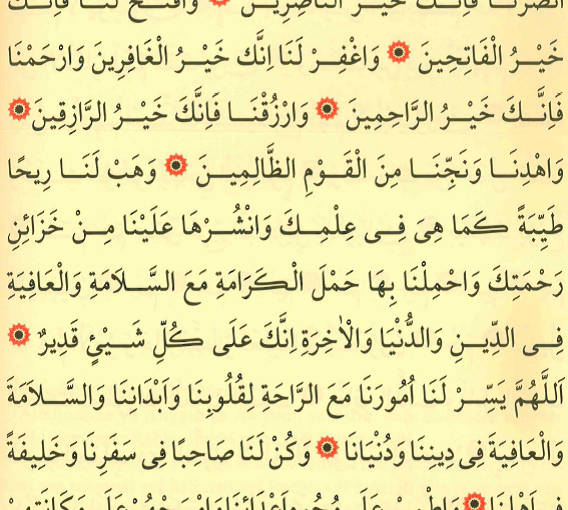 اُنْصُرْنَا فَاِنَّكَ خَيْرُ النَّاصِرِينَ وَافْتَحْ لَنَا فَاِنَّكَ
خَيْرُ الْفَاتِحِينَ وَاغْفِرْ لَنَا اِنَّكَ خَيْرُ الْغَافِرِينَ وَارْحَمْنَا
فَاِنَّكَ خَيْرُ الرَّاحِمِينَ وَارْزُقْنَا فَاِنَّكَ خَيْرُ الرَّازِقِينَ
وَاهْدِنَا وَنَجِّنَا مِنَ الْقَوْمِ الظَّالِمِينَ وَهَبْ لَنَا رِيحًا
طَيِّبَةً كَمَا هِىَ فِى عِلْمِكَ وَانْشُرْهَا عَلَيْنَا مِنْ خَزَائِنِ
رَحْمَتِكَ وَاحْمِلْنَا بِهَا حَمْلَ الْكَرَامَةِ مَعَ السَّلَامَةِ وَالْعَافِيَةِ
فِى الدِّينِ وَالدُّنْيَا وَالْاٰخِرَةِ اِنَّكَ عَلَى كُلِّ شَيْئٍ قَدِيرٌ
اَللّٰهُمَّ يَسِّرْ لَنَا اُمُورَنَا مَعَ الرَّاحَةِ لِقُلُوبِنَا وَاَبْدَانِنَا وَالسَّلَامَةَ
وَالْعَافِيَةَ فِى دِينِنَا وَدُنْيَانَا وَكُنْ لَنَا صَاحِبًا فِى سَفَرِنَا وَخَلِيفَةً
فِى اَهْلِنَا وَاطْمِسْ عَلَى وُجُوهِ اَعْدَائِنَا وَامْسَخْهُمْ عَلَى مَكَانَتِهِمْ